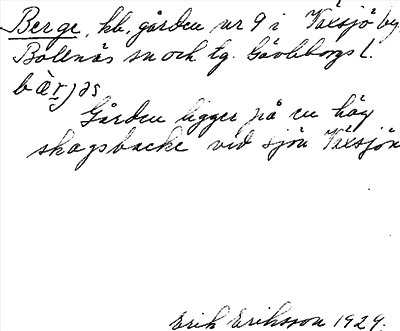 Berge, kb. gården nr 9 i Växsjö by,
Bollnäs sn och tg. Gävleborgs l.
bä̀rjəs
Gården ligger på en hög
skogsbacke vid sjön Växsjön
Erik Eriksson 1929.